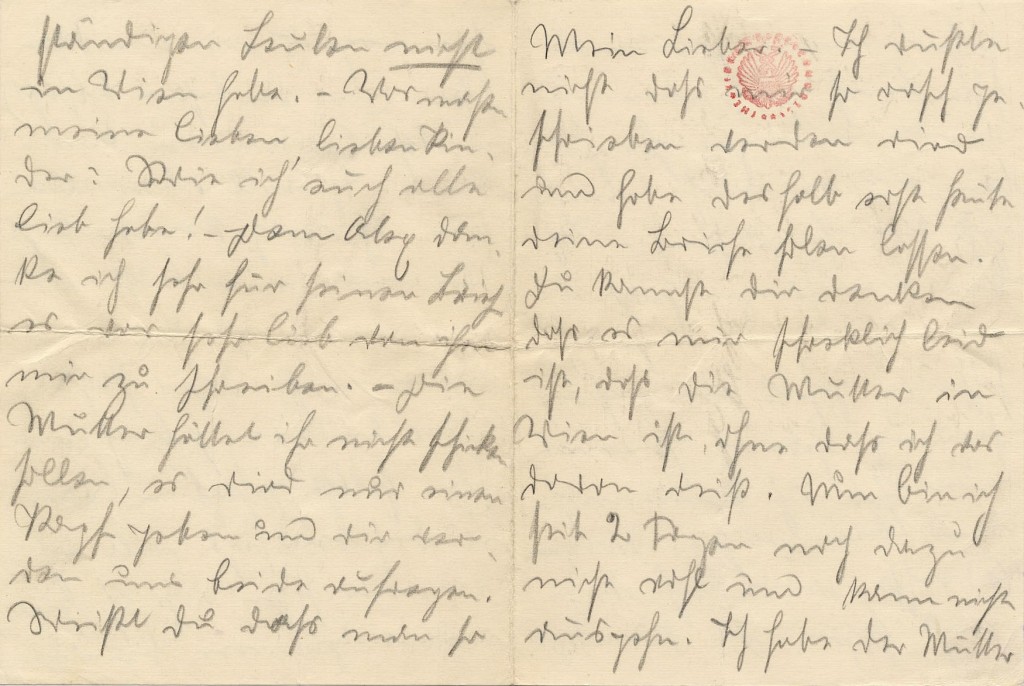 ständigen Leuten nicht
in Wien habe. – Was machen
meine lieben, lieben Kin-
der? Wie ich euch alle
lieb habe! – Dem Alex dan-
ke ich sehr für seinen Brief,
es war sehr lieb von ihm
mir zu schreiben. – Die
Mutter hättet ihr nicht schicken
sollen, es wird nur einen
geben und wir wer-
den uns beide aufregen.
Weißt du dass man so
Mein Lieber. – Ich wußte
nicht dass so rasch ge-
schrieben werden wird
und habe deshalb erst heute
deine Briefe holen lassen.
Du kannst dir denken
dass es mir schrecklich leid
ist, dass die Mutter in
Wien ist, ohne dass ich was
davon weiß. Nun bin ich
seit 2 Tagen noch dazu
nicht wohl und kann nicht
ausgehn. Ich habe der Mutter